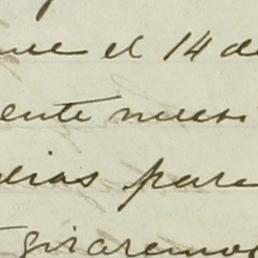 que el 14 de
ente nues
dias para
giraremos